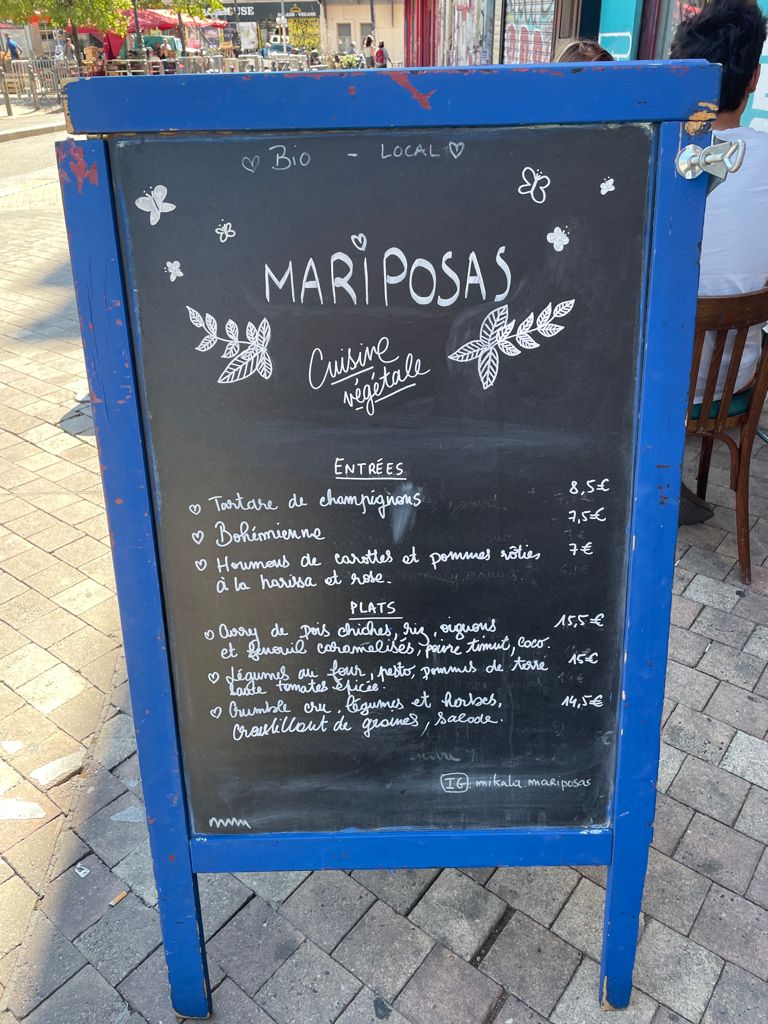 Bio - LOCAL
MARIPOSAS
Cuisine
végétale
ENTRÉES
Tartare de champignons 8,5€
Bohémienne 7,5€
Houmous de carottes et pommes rôties 7€
à la harissa et rose.
PLATS
Curry de pois chiches, riz, oignons 15,5€
et fenouil caramelisés, poivre timut, coco.
Légumes au four, pesto, pommes de terre 15€
sauce tomates épicée.
Crumble cru, légumes et herbes, 14,5€
croustillant de graines, salade.
IG: mikala.mariposas